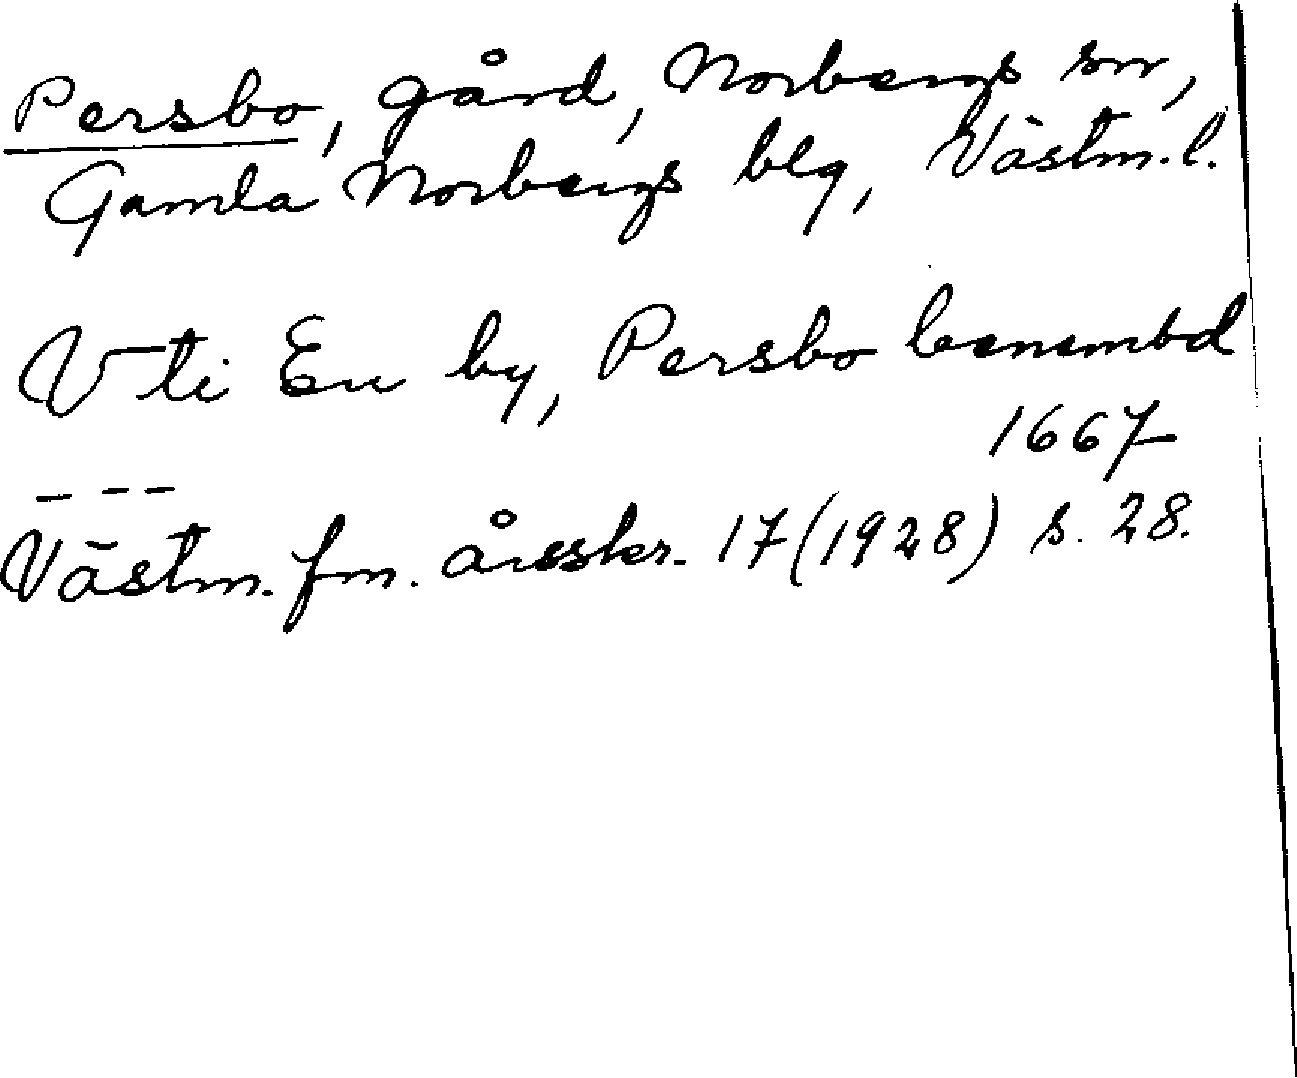 Persbo, gård, Norbergs sn,
Gamla Norbergs blg, Västm. l.
Vti En by, Persbo benembd
1667
- - -
Västm. fm. årsskr. 17 (1928) s. 28.